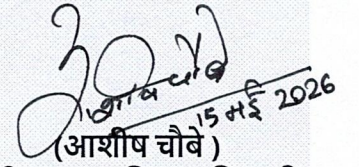 आशीष चौबे
15 मई 2026
(आशीष चौबे)